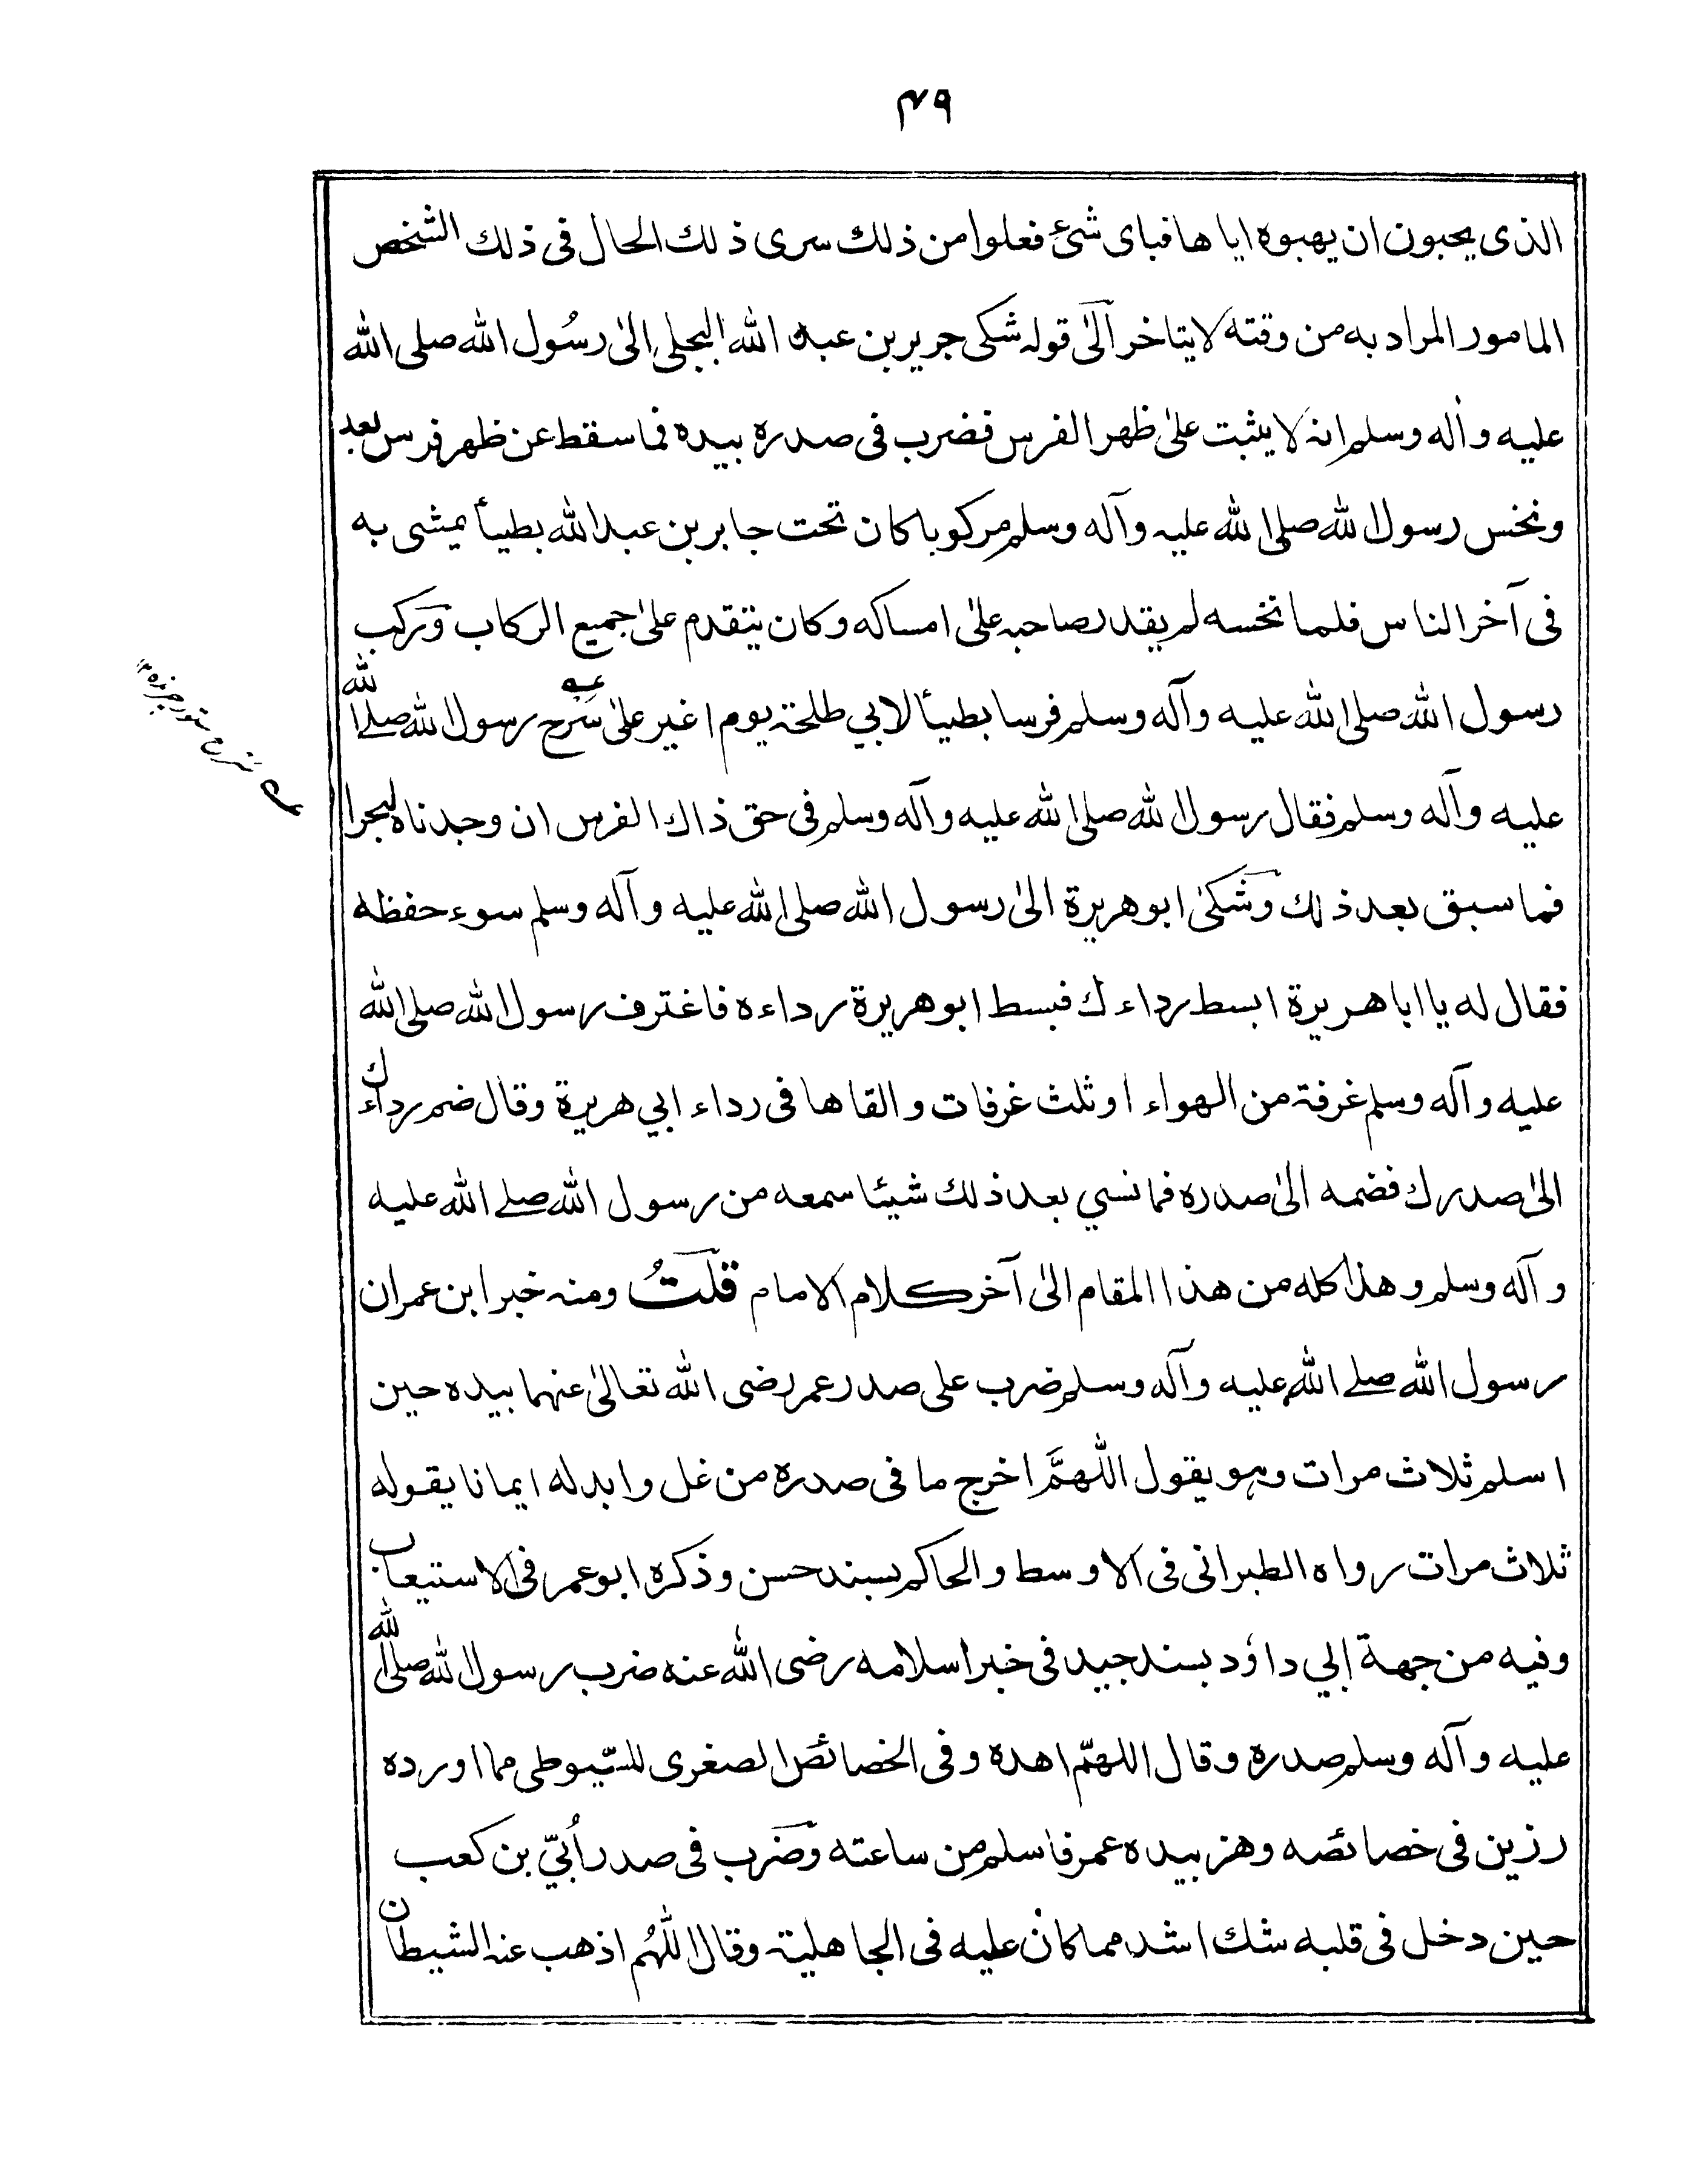 ۴۹
الذی یحبون ان یهبوه ایاها فبای شئ فعلوا من ذلك سری ذلك الحال فی ذلك الشخص
المامور المراد به من وقته لا یتاخر الٰی قوله شکی جریر بن عبد الله البجلی الیٰ رسُول الله صلی الله
علیه واٰله وسلم انه لا یثبت علیٰ ظهر الفرس فضرب فی صدره بیده فما سقط عن ظهر فرس بعد
ونخس رسول الله صلی الله علیه وآله وسلم مرکوبا کان تحت جابر بن عبد الله بطیأ یمشی به
فی آخر الناس فلما نخسه لم یقدر صاحبه علیٰ امساکه وکان یتقدم علیٰ جمیع الرکاب وَرکب
رسول الله صلی الله علیه وآله وسلم فرسا بطیأ لابي طلحة یوم اغیر علیٰ سَرْح رسول الله صلے الله
علیه وآله وسلم فقال رسول الله صلی الله علیه وآله وسلم فی حق ذاك الفرس ان وجدناه لبحرا
فما سبق بعد ذلك وشکیٰ ابوهریرة الیٰ رسول الله صلی الله علیه وآله وسلم سوء حفظه
فقال له یا اباهریرة ابسط رداءك فبسط ابوهریرة رداءه فاغترف رسول الله صلی الله
علیه وآله وسلم غرفة من الهواء او ثلث غرفات والقاها فی رداء ابي هریرة وقال ضم رداءك
الیٰ صدرك فضمه الیٰ صدره فما نسي بعد ذلك شیئا سمعه من رسول الله صلے الله علیه
وآله وسلم وهذا کله من هذا المقام الیٰ آخر کلام الامام قلتُ ومنه خبر ابن عمر ان
رسول الله صلے الله علیه وآله وسلم ضرب علی صدر عمر رضی الله تعالیٰ عنهما بیده حین
اسلم ثلاث مرات وهو یقول اللّٰهمَّ اخرج ما فی صدره من غل وابدله ایمانا یقوله
ثلاث مرات رواه الطبرانی فی الاوسط والحاکم بسند حسن وذکره ابو عمر فی الاستیعاب
وفیه من جهة ابي داؤد بسند جید فی خبر اسلامه رضی الله عنه ضرب رسول الله صلی الله
علیه وآله وسلم صدره وقال اللهمّ اهده وفی الخصائص الصغری للسّیوطی مما اورده
رزین فی خصائصه وهز بیده عمر فاسلم من ساعته وضرب فی صدر أُبيّ بن کعب
حین دخل فی قلبه شك اشد مما کان علیه فی الجاهلیة وقال اللّٰهُم اذهب عنه الشیطان
سرح ستور چرنده